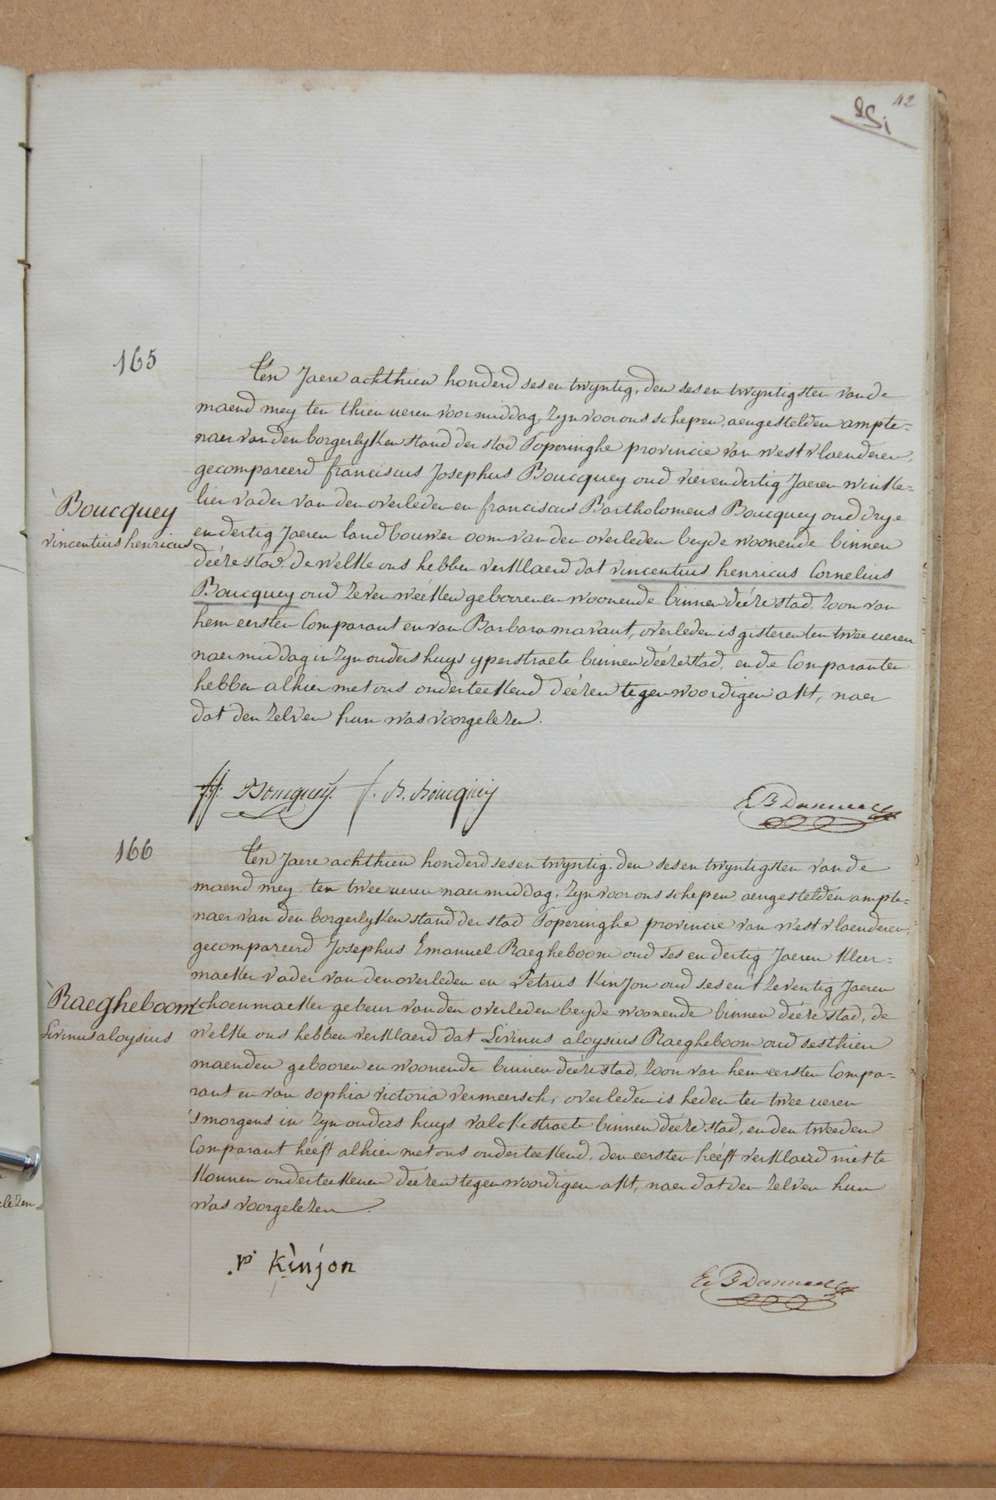 42
165
Ten Jaere achthien honderd ses en twyntig, den ses en twyntigsten van de
maend mey ten thien ueren voormiddag, Zyn voor ons schepen, aengestelden ampte=
naer van den borgerlyken stand der stad Poperinghe provincie van west vlaenderen,
gecompareerd franciscus Josephus Boucquey oud vier en dertig Jaeren winke=
lier vader van den overleden en franciscus Bartholomeus Boucquey oud drye
en dertig Jaeren landbouwer oom van den overleden beyde woonende binnen
deéze stad, de welke ons hebben verklaerd dat vincentius henricus Cornelius
Boucquey oud Zeven weéken geboren en woonende binnen deéze stad, Zoon van
hem eersten Comparant en van Barbara mavaut, overleden is gisteren ten twee ueren
naermiddag in Zyn ouders huys yperstraete binnen deéze stad, en de Comparanten
hebben alhier met ons onderteekend deézen tegenwoordigen akt, naer
dat den Zelven hun was voorgelezen.
Boucquey
vincentius henricus
f. j. Boucquey. f. B. Boucquey
166
Ten Jaere achthien honderd ses en twyntig, den ses en twyntigsten van de
maend mey ten twee ueren naermiddag, Zyn voor ons schepen aengestelden ampte=
naer van den borgerlyken stand der stad Poperinghe provincie van west vlaenderen,
gecompareerd Josephus Emanuel Raegheboom oud ses en dertig Jaeren kleer=
maeker vader van den overleden en Petrus Kinjon oud ses en Zeventig Jaeren
schoenmaeker gebeur van den overleden beyde woonende binnen deéze stad, de
welke ons hebben verklaerd dat Livinus aloysius Raegheboom oud sesthien
maenden gebooren en woonende binnen deéze stad, Zoon van hem eersten Compa=
rant en van sophia victoria vermeersch, overleden is heden ten twee ueren
's morgens in Zyn ouders huys valckestraete binnen deéze stad, en den tweeden
Comparant heéft alhier met ons onderteekend, den eersten heéft verklaerd niet te
konnen onderteekenen deézen tegenwoordigen akt, naer dat den Zelven hun
was voorgelezen.
Raegheboom
Livinus aloysius
p. kinjon